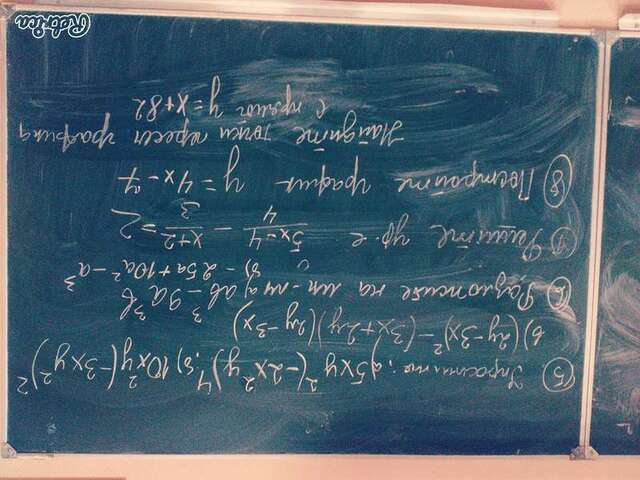 ⑤ Упростите: а) 5xy²(-2x²y)⁴; б) 10x²y(-3xy²)²
в) (2y-3x)² - (3x+2y)(2y-3x)
⑥ Разложите на мн-ли а) ab³ - 9a³b
б) - 25a + 10a² - a³
⑦ Решите ур-е (5x-4)/4 - (x+2)/3 = 2
⑧ Постройте график y = 4x - 7
Найдите точки пересеч графика
с прямой y = x + 82
Retrica